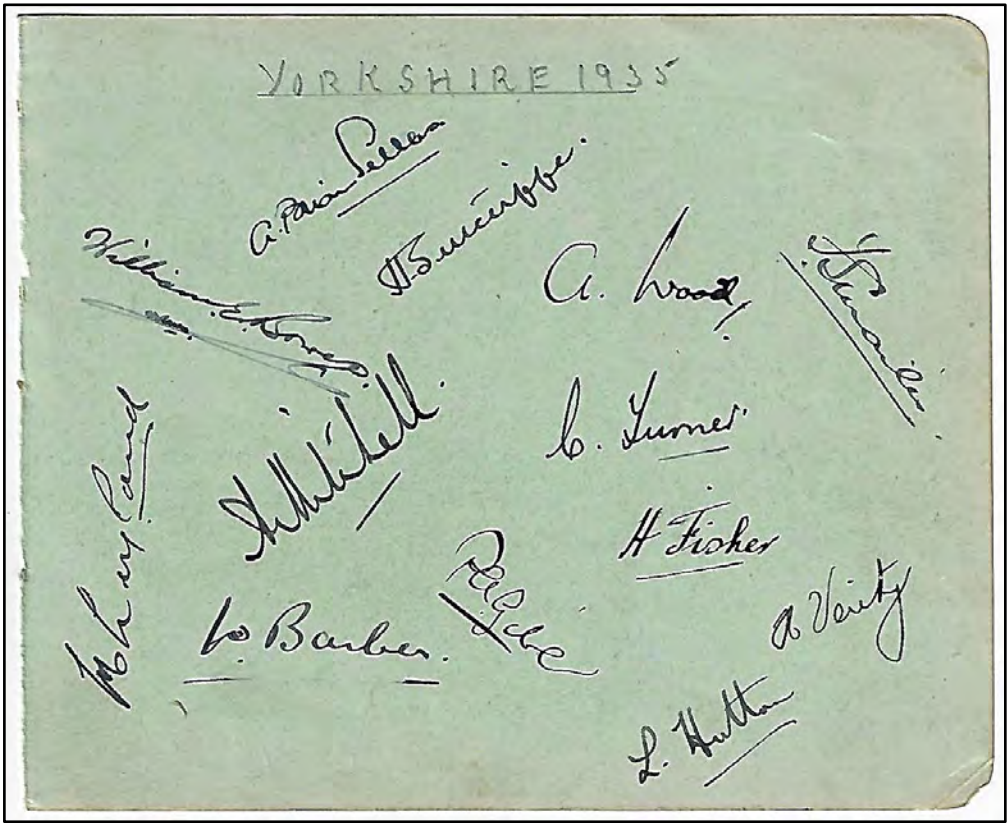 YORKSHIRE 1935
A. Brian Sellers
H. Sutcliffe.
William. E. Bowes
A. Wood
T. F. Smailes
A Mitchell.
C. Turner
M Leyland
H Fisher
W. Barber.
P A Gibb
H Verity
L. Hutton